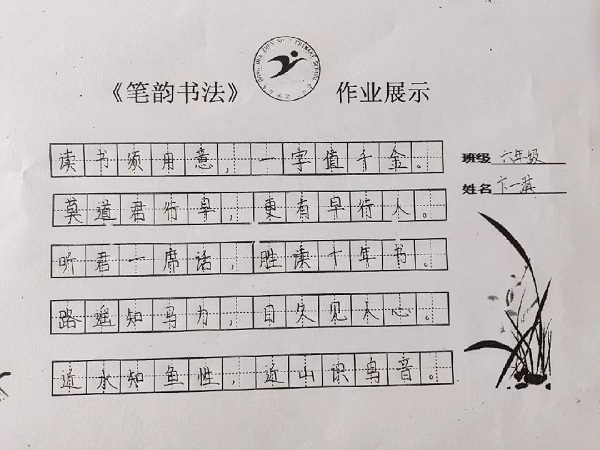 《笔韵书法》 作业展示
班级 六年级
姓名 卞一
读书须用意,一字值千金。
莫道君行早,更有早行人。
听君一席话,胜读十年书。
路遥知马力,日久见人心。
近水知鱼性,近山识鸟音。